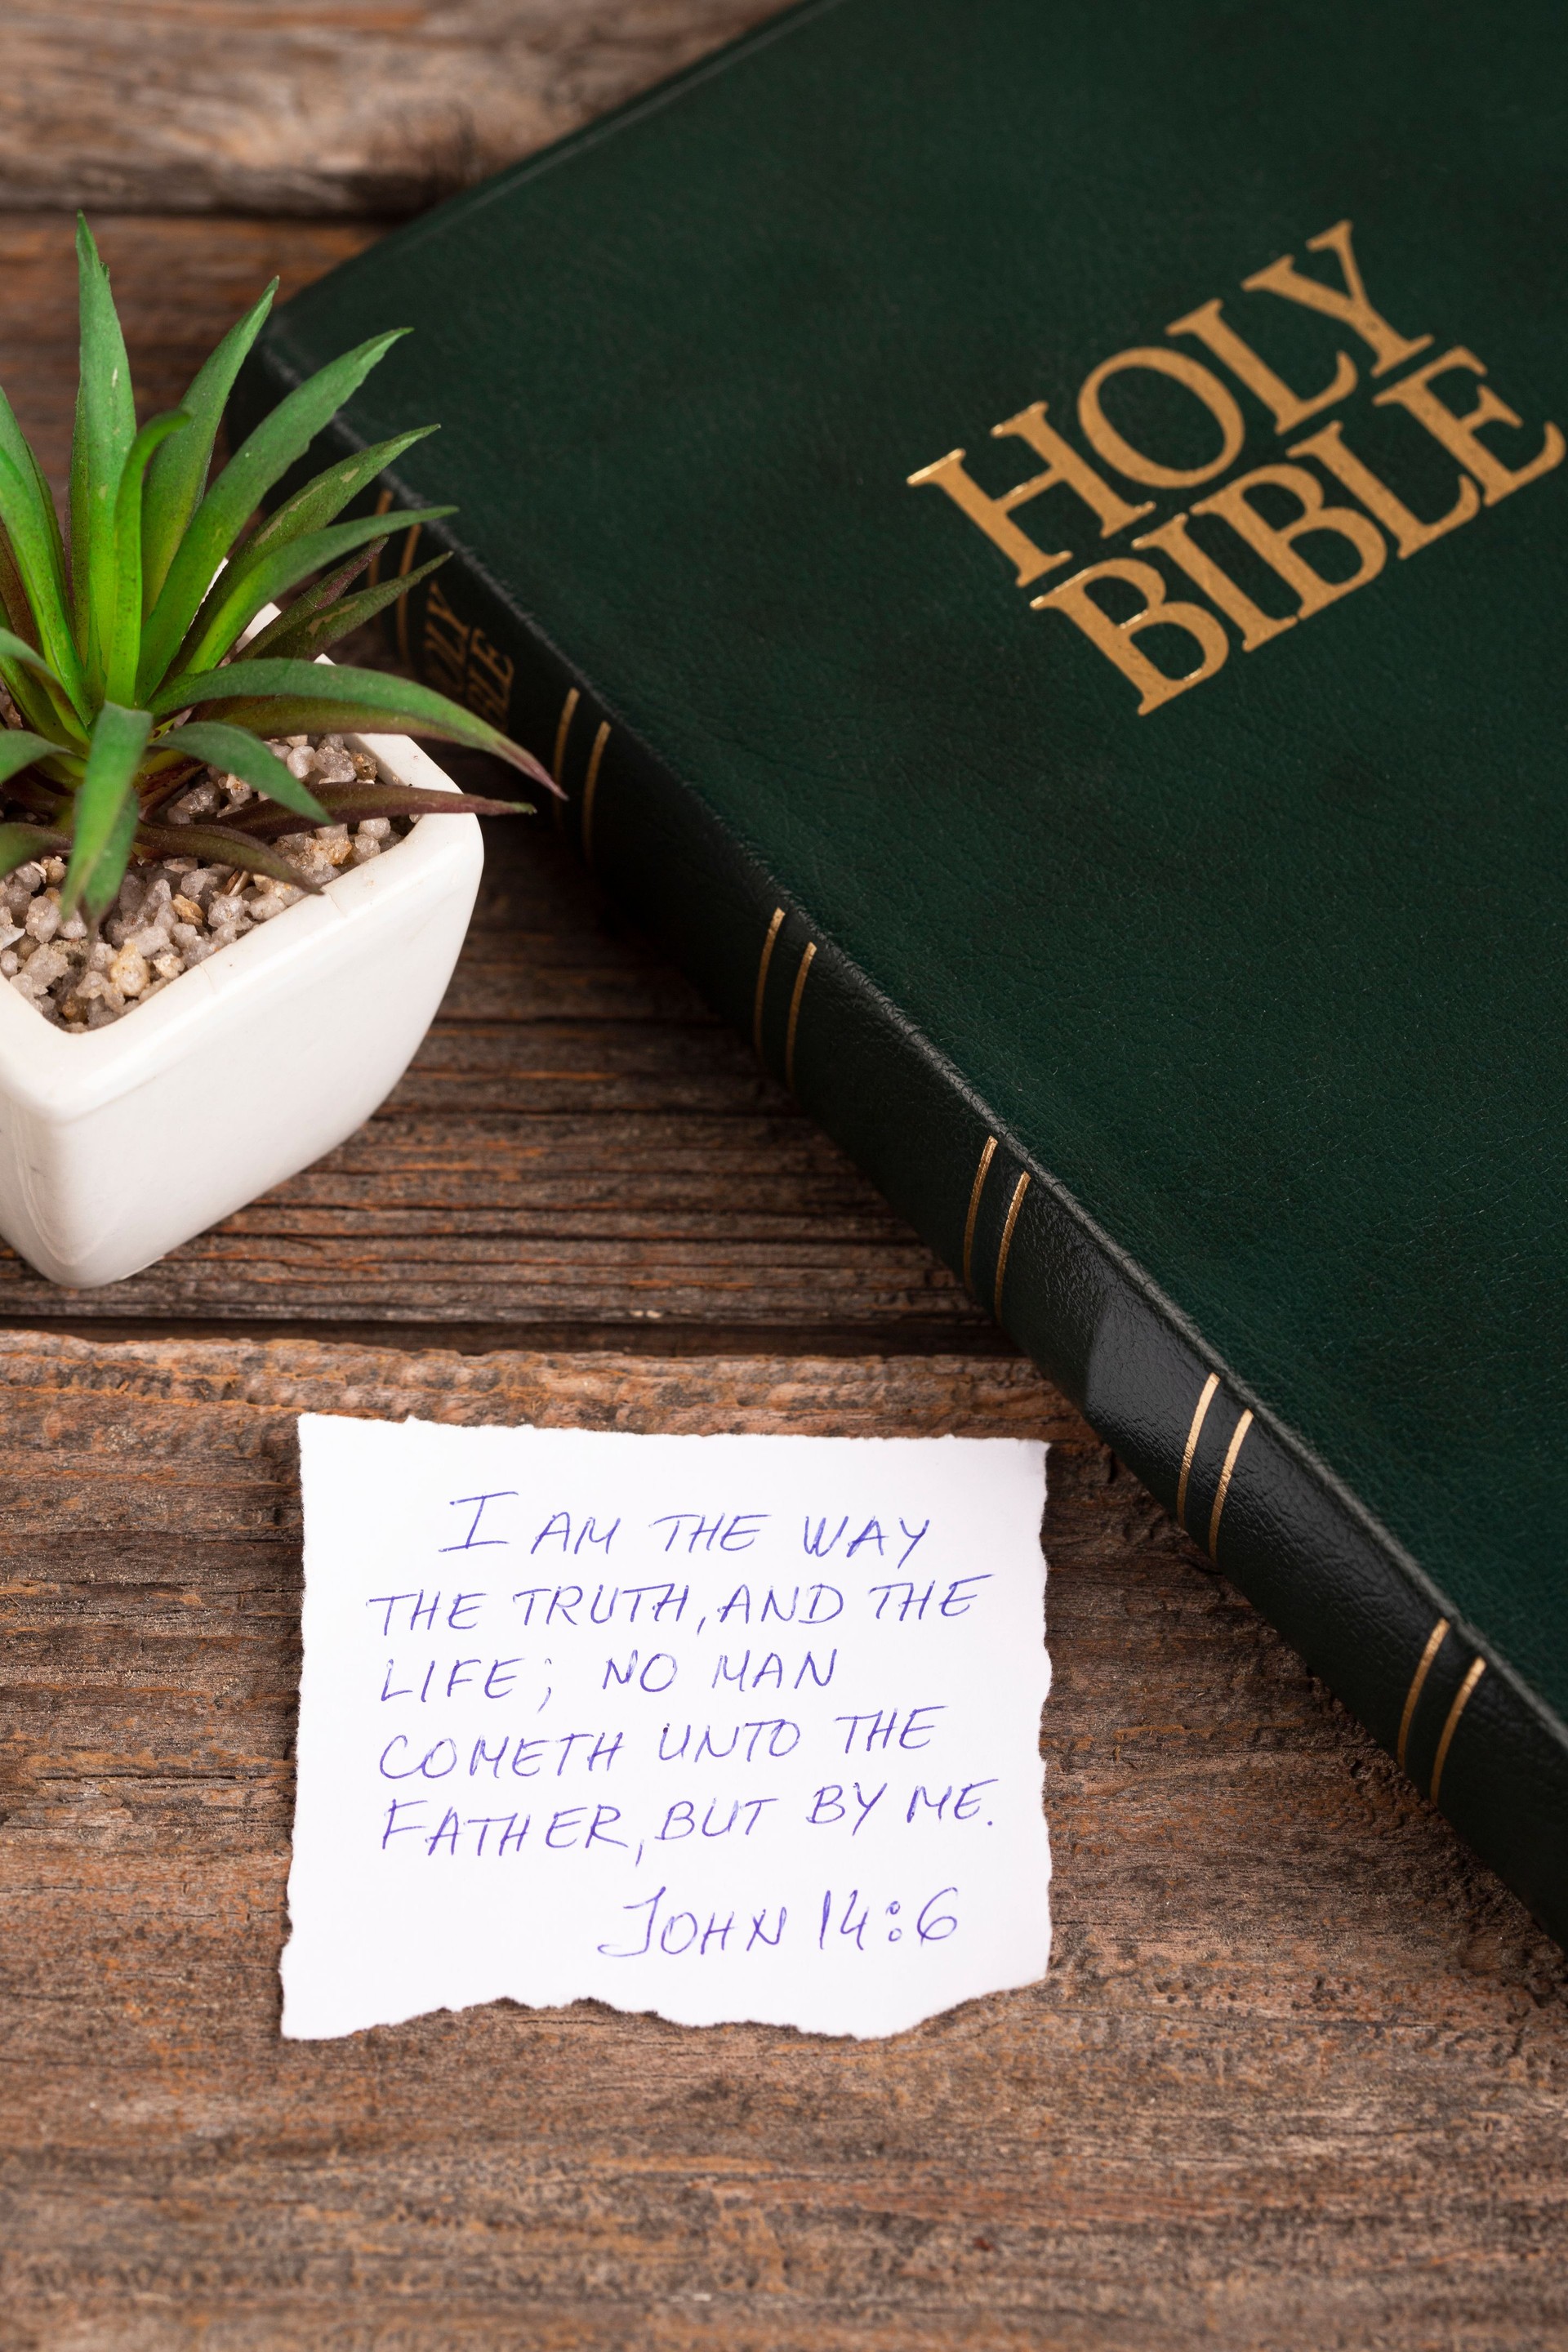 HOLY
BIBLE
I AM THE WAY
THE TRUTH, AND THE
LIFE; NO MAN
COMETH UNTO THE
FATHER, BUT BY ME.
JOHN 14:6